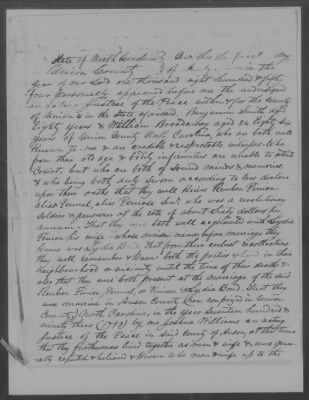 State of North Carolina } On this the first day
Union County } of July in the
year of our Lord one thousand eight hundred & fifty
four personally appeared before me the undersigned
an acting Justice of the Peace within & for the County
of Union & in the State aforesaid, Benjamin Smith aged
Eighty years & William Broadaway aged 86 Eighty six
years of Union County North Carolina, who are both well
Known to me & are credible & respectable witnesses, who
from their old age & bodily infirmities are unable to attend
Court, but who are both of sound minds & memories
& who being both duly sworn according to law declare
upon their oaths that they well knew Reuben Pinion
alias Pennel, alias Penion Senr. who was a revolutionary
Soldier & pensioner at the rate of about Sixty dollars per
annum. That they were both well acquainted with Lydia
Pinion his wife whose maiden name before marriage they
knew was Lydia Bond. That from their earliest recollections
they well remember & knew both the parties & lived in their
neighbourhood or vicinity until the time of their deaths &
also that they were both present at the marriage of the said
Reuben Pinion, Pennel, or Penion & Lydia Bond. That they
were married in Anson County (now comprised in Union
County) North Carolina, in the year Seventeen hundred &
ninety three (1793) by one Joshua Williams an acting
Justice of the Peace in said County of Anson, at that time
that they forthwith lived together as man & wife & were gene-
rally reputed & believed & Known to be man & wife up to the